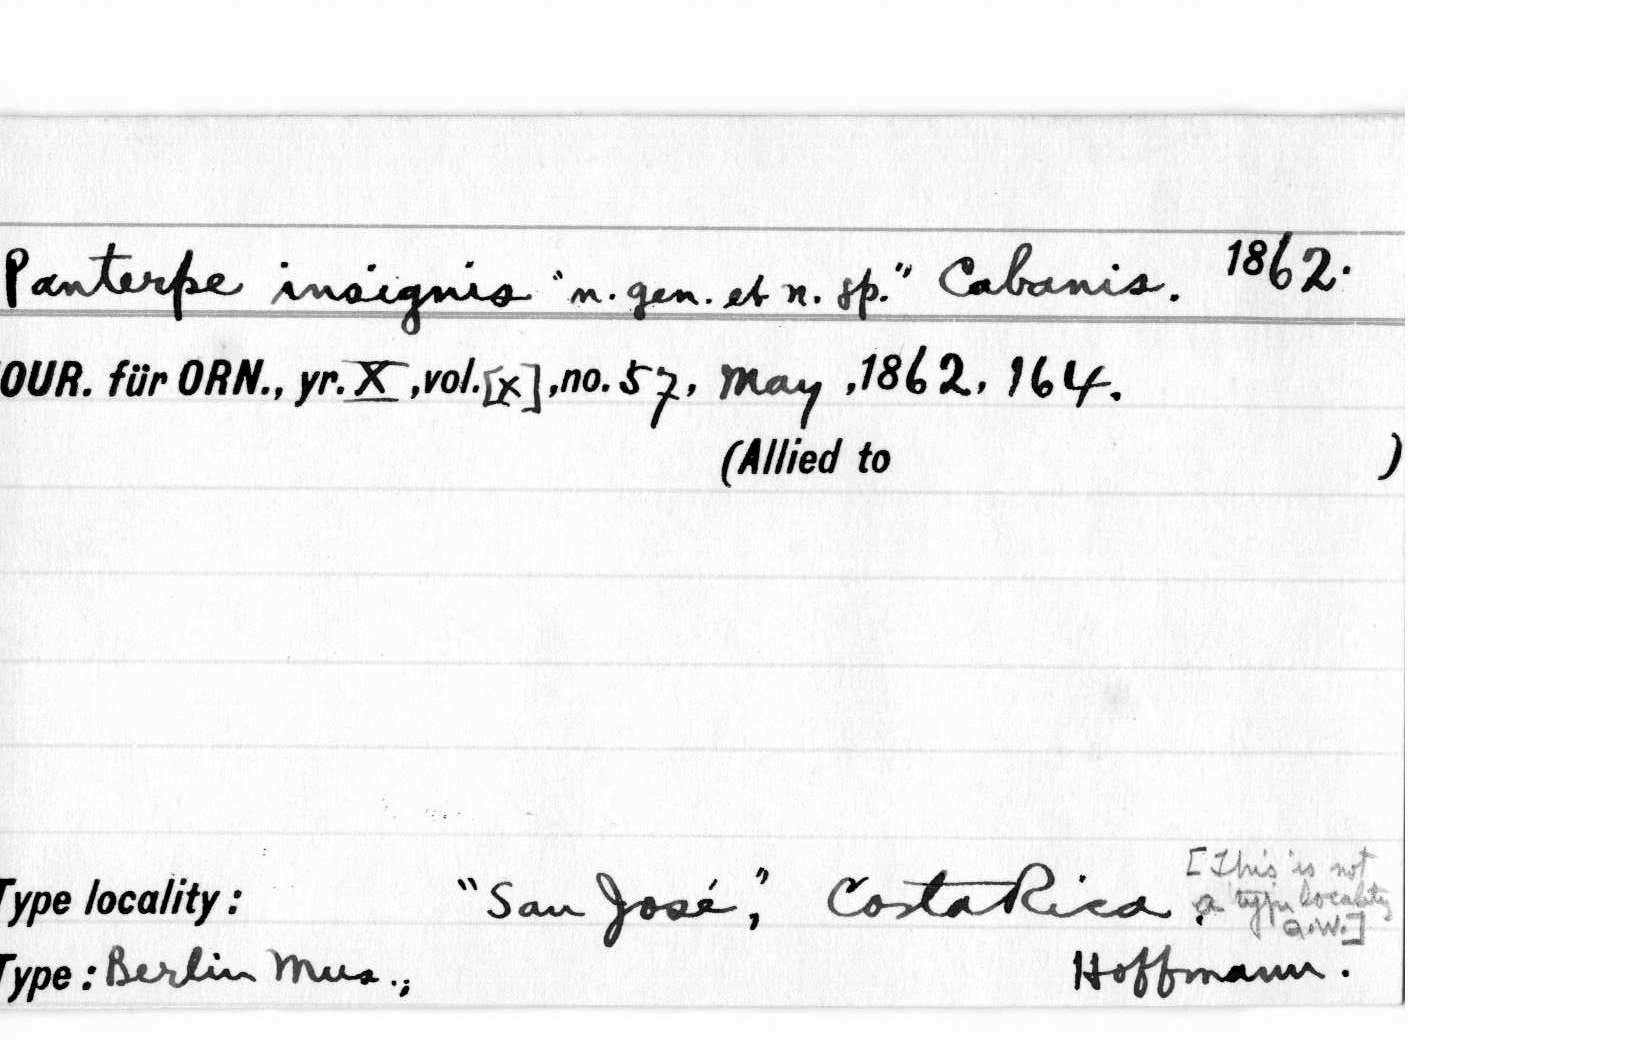 Panterpe insignis "n. gen. et n. sp." Cabanis. 1862.
OUR. für ORN., yr. X, vol. [x], no. 57, May, 1862, 164.
(Allied to )
Type locality: "San José," Costa Rica.
[This is not
a type locality
a.w.]
Type: Berlin Mus.; Hoffmann.